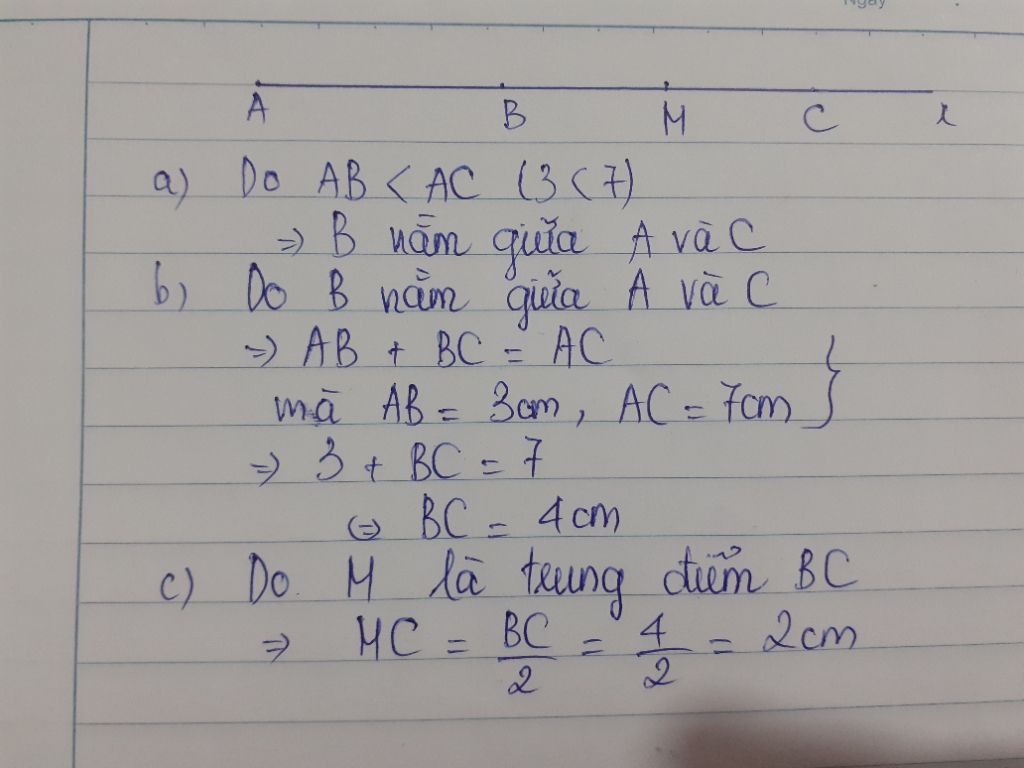 Ngày
A B M C x
a) Do AB < AC (3 < 7)
=> B nằm giữa A và C
b) Do B nằm giữa A và C
=> AB + BC = AC
mà AB = 3cm, AC = 7cm }
=> 3 + BC = 7
<=> BC = 4cm
c) Do M là trung điểm BC
=> MC = BC/2 = 4/2 = 2cm